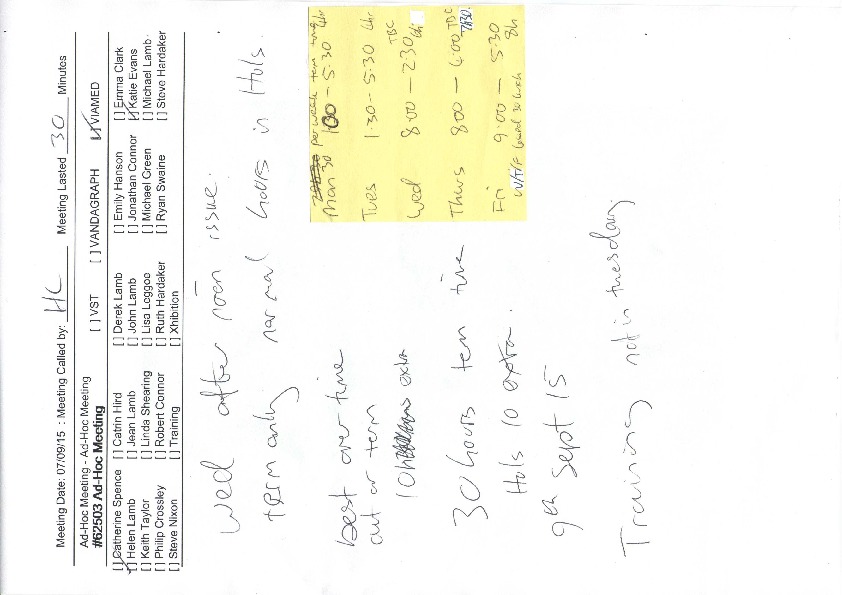 Meeting Date: 07/09/15 : Meeting Called by: HL Meeting Lasted 30 Minutes
Ad-Hoc Meeting - Ad-Hoc Meeting
#62503 Ad-Hoc Meeting
[ ] VST [ ] VANDAGRAPH [ ] VIAMED
[ ] Catherine Spence [ ] Catrin Hird [ ] Derek Lamb [ ] Emily Hanson [ ] Emma Clark
[ ] Helen Lamb [ ] Jean Lamb [ ] John Lamb [ ] Jonathan Connor [ ] Katie Evans
[ ] Keith Taylor [ ] Linda Shearing [ ] Lisa Loggoo [ ] Michael Green [ ] Michael Lamb
[ ] Philip Crossley [ ] Robert Connor [ ] Ruth Hardaker [ ] Ryan Swaine [ ] Steve Hardaker
[ ] Steve Nixon [ ] Training [ ] Xhibition
Wed after noon issue.
term only normal hours in Hols.
best over time
out or term
10h extra
30 hours tem time
Hols 10 extra.
9th Sept 15
Training not in tuesday
30 per week term time
Mon 1:00 - 5:30 4hr
Tues 1:30 - 5:30 4hr
Wed 8:00 - 2:30 TBC 6h
Thurs 8:00 - 4:00 TBC 7h30
Fri 9:00 - 5:30 8h
W/T/F